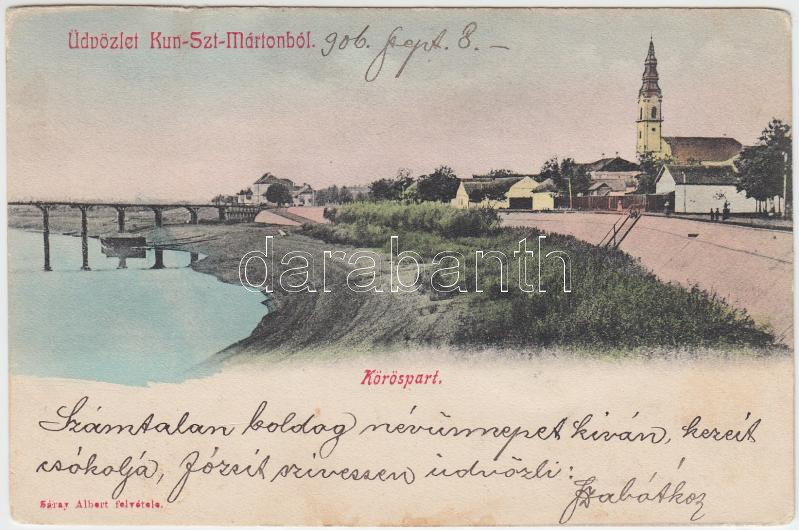 Üdvözlet Kun-Szt-Mártonból. 906. Sept. 8. –
darabanth
Köröspart.
Számtalan boldog névünnepet kiván, kezeit
csókolja, Józsit szivessen üdvözli:
Sáray Albert felvétele.